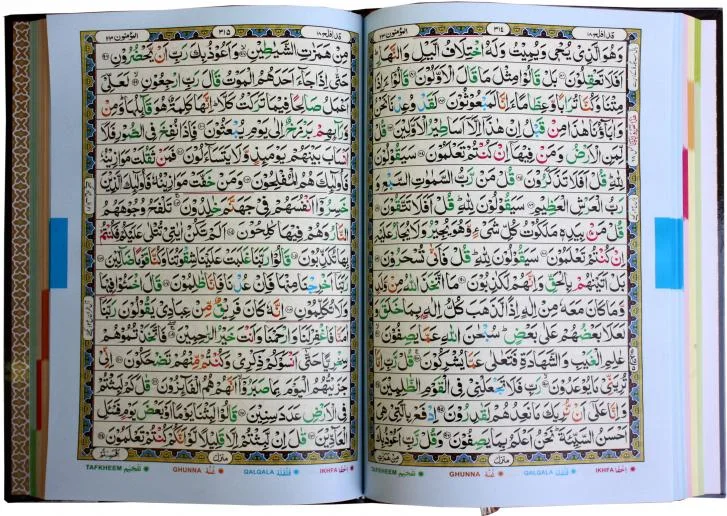 قد افلح ١٨
٣١٤
المؤمنون ٢٣
وَهُوَ الَّذِيْ يُحْيٖ وَيُمِيْتُ وَلَهُ اخْتِلَافُ الَّيْلِ وَالنَّهَارِ
اَفَلَا تَعْقِلُوْنَ ۝ بَلْ قَالُوْا مِثْلَ مَا قَالَ الْاَوَّلُوْنَ ۝ قَالُوْٓا ءَاِذَا
مِتْنَا وَكُنَّا تُرَابًا وَّعِظَامًا ءَاِنَّا لَمَبْعُوْثُوْنَ ۝ لَقَدْ وُعِدْنَا نَحْنُ
وَاٰبَآؤُنَا هٰذَا مِنْ قَبْلُ اِنْ هٰذَآ اِلَّآ اَسَاطِيْرُ الْاَوَّلِيْنَ ۝ قُلْ
لِّمَنِ الْاَرْضُ وَمَنْ فِيْهَآ اِنْ كُنْتُمْ تَعْلَمُوْنَ ۝ سَيَقُوْلُوْنَ
لِلّٰهِ قُلْ اَفَلَا تَذَكَّرُوْنَ ۝ قُلْ مَنْ رَّبُّ السَّمٰوٰتِ السَّبْعِ وَ
رَبُّ الْعَرْشِ الْعَظِيْمِ ۝ سَيَقُوْلُوْنَ لِلّٰهِ قُلْ اَفَلَا تَتَّقُوْنَ ۝
قُلْ مَنْ بِيَدِهٖ مَلَكُوْتُ كُلِّ شَيْءٍ وَّهُوَ يُجِيْرُ وَلَا يُجَارُ عَلَيْهِ
اِنْ كُنْتُمْ تَعْلَمُوْنَ ۝ سَيَقُوْلُوْنَ لِلّٰهِ قُلْ فَاَنّٰى تُسْحَرُوْنَ ۝
بَلْ اَتَيْنٰهُمْ بِالْحَقِّ وَاِنَّهُمْ لَكٰذِبُوْنَ ۝ مَا اتَّخَذَ اللّٰهُ مِنْ وَّلَدٍ
وَّمَا كَانَ مَعَهٗ مِنْ اِلٰهٍ اِذًا لَّذَهَبَ كُلُّ اِلٰهٍۢ بِمَا خَلَقَ وَ
لَعَلَا بَعْضُهُمْ عَلٰى بَعْضٍ سُبْحٰنَ اللّٰهِ عَمَّا يَصِفُوْنَ ۝
عٰلِمِ الْغَيْبِ وَالشَّهَادَةِ فَتَعٰلٰى عَمَّا يُشْرِكُوْنَ ۝ قُلْ رَّبِّ اِمَّا
تُرِيَنِّيْ مَا يُوْعَدُوْنَ ۝ رَبِّ فَلَا تَجْعَلْنِيْ فِي الْقَوْمِ الظّٰلِمِيْنَ ۝
وَاِنَّا عَلٰٓى اَنْ نُّرِيَكَ مَا نَعِدُهُمْ لَقٰدِرُوْنَ ۝ اِدْفَعْ بِالَّتِيْ هِيَ
اَحْسَنُ السَّيِّئَةَ نَحْنُ اَعْلَمُ بِمَا يَصِفُوْنَ ۝ وَقُلْ رَّبِّ اَعُوْذُ بِكَ
منزل ٤
TAFKHEEM تفخيم GHUNNA غُنَّة QALQALA قَلْقَلَة IKHFA اِخْفَا
قد افلح ١٨
٣١٥
المؤمنون ٢٣
مِنْ هَمَزٰتِ الشَّيٰطِيْنِ ۝ وَاَعُوْذُ بِكَ رَبِّ اَنْ يَّحْضُرُوْنِ ۝
حَتّٰٓى اِذَا جَآءَ اَحَدَهُمُ الْمَوْتُ قَالَ رَبِّ ارْجِعُوْنِ ۝ لَعَلِّيْٓ
اَعْمَلُ صَالِحًا فِيْمَا تَرَكْتُ كَلَّا اِنَّهَا كَلِمَةٌ هُوَ قَآئِلُهَا وَمِنْ
وَّرَآئِهِمْ بَرْزَخٌ اِلٰى يَوْمِ يُبْعَثُوْنَ ۝ فَاِذَا نُفِخَ فِي الصُّوْرِ فَلَآ
اَنْسَابَ بَيْنَهُمْ يَوْمَئِذٍ وَّلَا يَتَسَآءَلُوْنَ ۝ فَمَنْ ثَقُلَتْ مَوَازِيْنُهٗ
فَاُولٰٓئِكَ هُمُ الْمُفْلِحُوْنَ ۝ وَمَنْ خَفَّتْ مَوَازِيْنُهٗ فَاُولٰٓئِكَ الَّذِيْنَ
خَسِرُوْٓا اَنْفُسَهُمْ فِيْ جَهَنَّمَ خٰلِدُوْنَ ۝ تَلْفَحُ وُجُوْهَهُمُ
النَّارُ وَهُمْ فِيْهَا كٰلِحُوْنَ ۝ اَلَمْ تَكُنْ اٰيٰتِيْ تُتْلٰى عَلَيْكُمْ فَكُنْتُمْ
بِهَا تُكَذِّبُوْنَ ۝ قَالُوْا رَبَّنَا غَلَبَتْ عَلَيْنَا شِقْوَتُنَا وَكُنَّا قَوْمًا ضَآلِّيْنَ ۝
رَبَّنَآ اَخْرِجْنَا مِنْهَا فَاِنْ عُدْنَا فَاِنَّا ظٰلِمُوْنَ ۝ قَالَ اخْسَـُٔوْا فِيْهَا
وَلَا تُكَلِّمُوْنِ ۝ اِنَّهٗ كَانَ فَرِيْقٌ مِّنْ عِبَادِيْ يَقُوْلُوْنَ رَبَّنَآ
اٰمَنَّا فَاغْفِرْ لَنَا وَارْحَمْنَا وَاَنْتَ خَيْرُ الرّٰحِمِيْنَ ۝ فَاتَّخَذْتُمُوْهُمْ
سِخْرِيًّا حَتّٰٓى اَنْسَوْكُمْ ذِكْرِيْ وَكُنْتُمْ مِّنْهُمْ تَضْحَكُوْنَ ۝ اِنِّيْ
جَزَيْتُهُمُ الْيَوْمَ بِمَا صَبَرُوْٓا اَنَّهُمْ هُمُ الْفَآئِزُوْنَ ۝ قٰلَ كَمْ لَبِثْتُمْ
فِي الْاَرْضِ عَدَدَ سِنِيْنَ ۝ قَالُوْا لَبِثْنَا يَوْمًا اَوْ بَعْضَ يَوْمٍ فَسْـَٔلِ
الْعَآدِّيْنَ ۝ قٰلَ اِنْ لَّبِثْتُمْ اِلَّا قَلِيْلًا لَّوْ اَنَّكُمْ كُنْتُمْ تَعْلَمُوْنَ ۝
منزل ٤
TAFKHEEM تفخيم GHUNNA غُنَّة QALQALA قَلْقَلَة IKHFA اِخْفَا